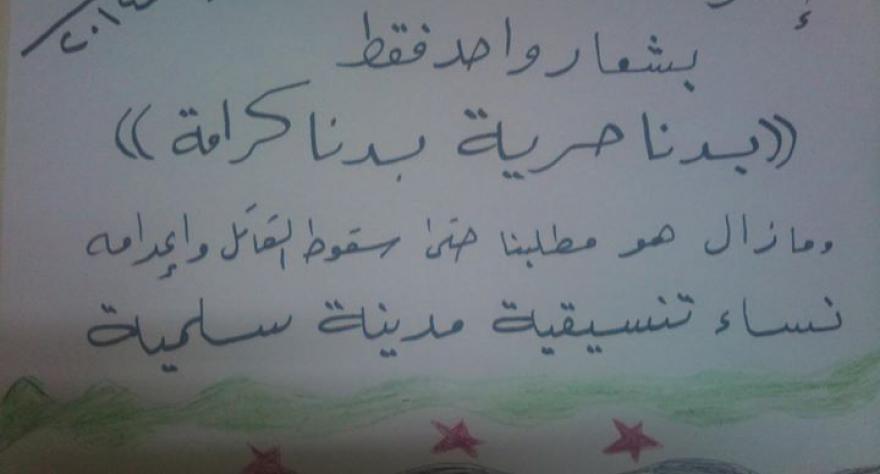 بشعار واحد فقط
((بدنا حرية بدنا كرامة))
وما زال هو مطلبنا حتى سقوط القاتل وإعدامه
نساء تنسيقية مدينة سلمية